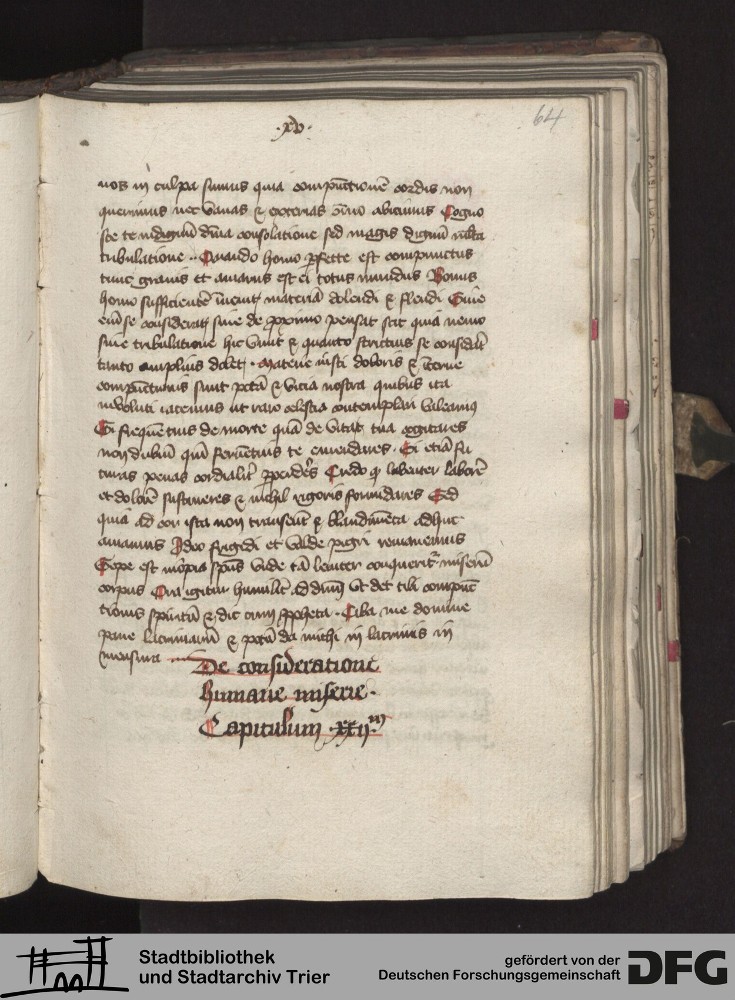 ·xv·
64
nos in culpa sumus quia compūctionē cordis non
querimus nec vanas et externas om̄io abicimus Cogno
sce te indignū diuīa consolatione sed magis dignū ml̄ta
tribulatione · Quando homo ꝑfecte est compunctus
tunc grauis et amarus est ei totus mundus Bonus
homo sufficientē īuenit materiā dolendi et flendi Siue
enī se considerat siue de proximo pensat scit quia nemo
sine tribulatione hic viuit et quanto strictius se considāt
tanto amplius dolet · Materie iusti doloris et īterne
compūctionis sunt pctā et vicia nostra quibus ita
inuoluti iacemus ut raro celestia contemplari valeamus
Si frequētius de morte quā de vitae tua cogitares
non dubiū quī feruētius te emendares · Si etiā fu
turas penas cordialit̄ ppēderes Credo q̄ libenter laborē
et dolorē sustineres et nichil rigoris formidares Sed
quia ad cor ista non transeūt et blandimēta adhuc
amamus Ideo frigidi et valde pigri remanemus
Sepe est inopia spūs vnde tā leuiter conquerit̄ miserū
corpus Ora igitur humilit̄ ad dnm̄ vt det tibi compūc
tionis spiritū et dic cum ꝓpheta · Ciba me domine
pane lacrimarū et potū da michi in lacrimis in
mensura
De consideratione
humane miserie ·
Capitulum xxij.m
Stadtbibliothek
und Stadtarchiv Trier
gefördert von der
Deutschen Forschungsgemeinschaft
DFG